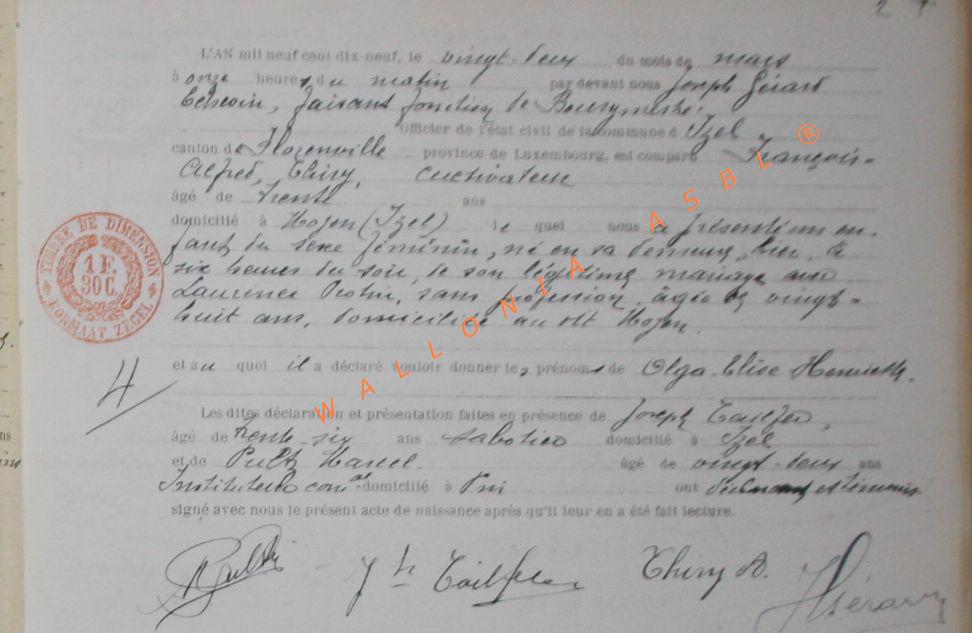 L'AN mil neuf cent dix neuf, le vingt-deux du mois de mars
à onze heures du matin par devant nous Joseph Gérard
Echevin, faisant fonction de Bourgmestre,
Officier de l'état civil de la commune d Izel
canton de Florenville province de Luxembourg, est comparu François-
Alfred, Thiry, cultivateur
âgé de trente ans
domicilié à Moyen (Izel) le quel nous a présenté un en-
fant du sexe féminin, né en sa demeure, hier, à
six heures du soir, de son légitime mariage avec
Laurence sans profession, âgée de vingt-
huit ans, domiciliée au dit Moyen.
et au quel il a déclaré vouloir donner les prénoms de Olga-Elise Henriette.
Les dites déclaration et présentation faites en présence de Joseph
âgé de trente-six ans sabotier domicilié à Izel
et de Marcel âgé de vingt-deux ans
Instituteur domicilié à ont
signé avec nous le présent acte de naissance après qu'il leur en a été fait lecture.
Thiry A.
4
TIMBRE DE DIMENSION
1 F.
30 C.
FORMAAT ZEGEL
WALLONIA ASBL ®